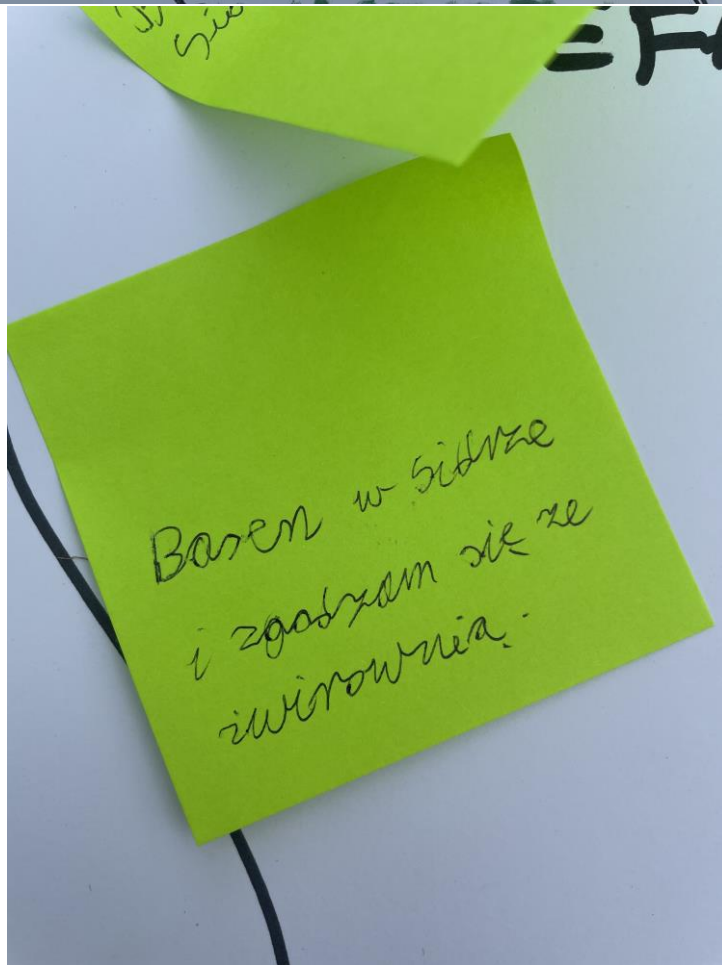 Sid
EF
Basen w Sidrze
i zgadzam się ze
żwirownią.